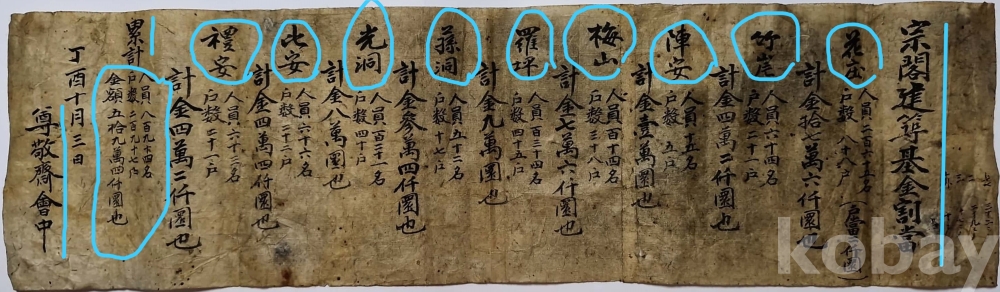 宗閣建築基金割當
花庄 人員二百六十五名
戶數 八十八戶 (戶當二仟圜)
計金拾七萬六仟圜也
竹岸 人員六十四名
戶數二十一戶
計金四萬二仟圜也
陣安 人員十五名
戶數五戶
計金壹萬圜也
梅山 人員百十四名
戶數三十八戶
計金七萬六仟圜也
羅碑 人員百三十四名
戶數四十五戶
計金九萬圜也
蓀洞 人員五十二名
戶數十七戶
計金參萬四仟圜也
光洞 人員百二十一名
戶數四十戶
計金八萬圜也
比安 人員六十六名
戶數二十二戶
計金四萬四仟圜也
禮安 人員六十三名
戶數二十一戶
計金四萬二仟圜也
累計 人員 八百九十四名
戶數二百九十七戶
金額五拾九萬四仟圜也
丁酉十月三日
尊敬齋會中
kobay